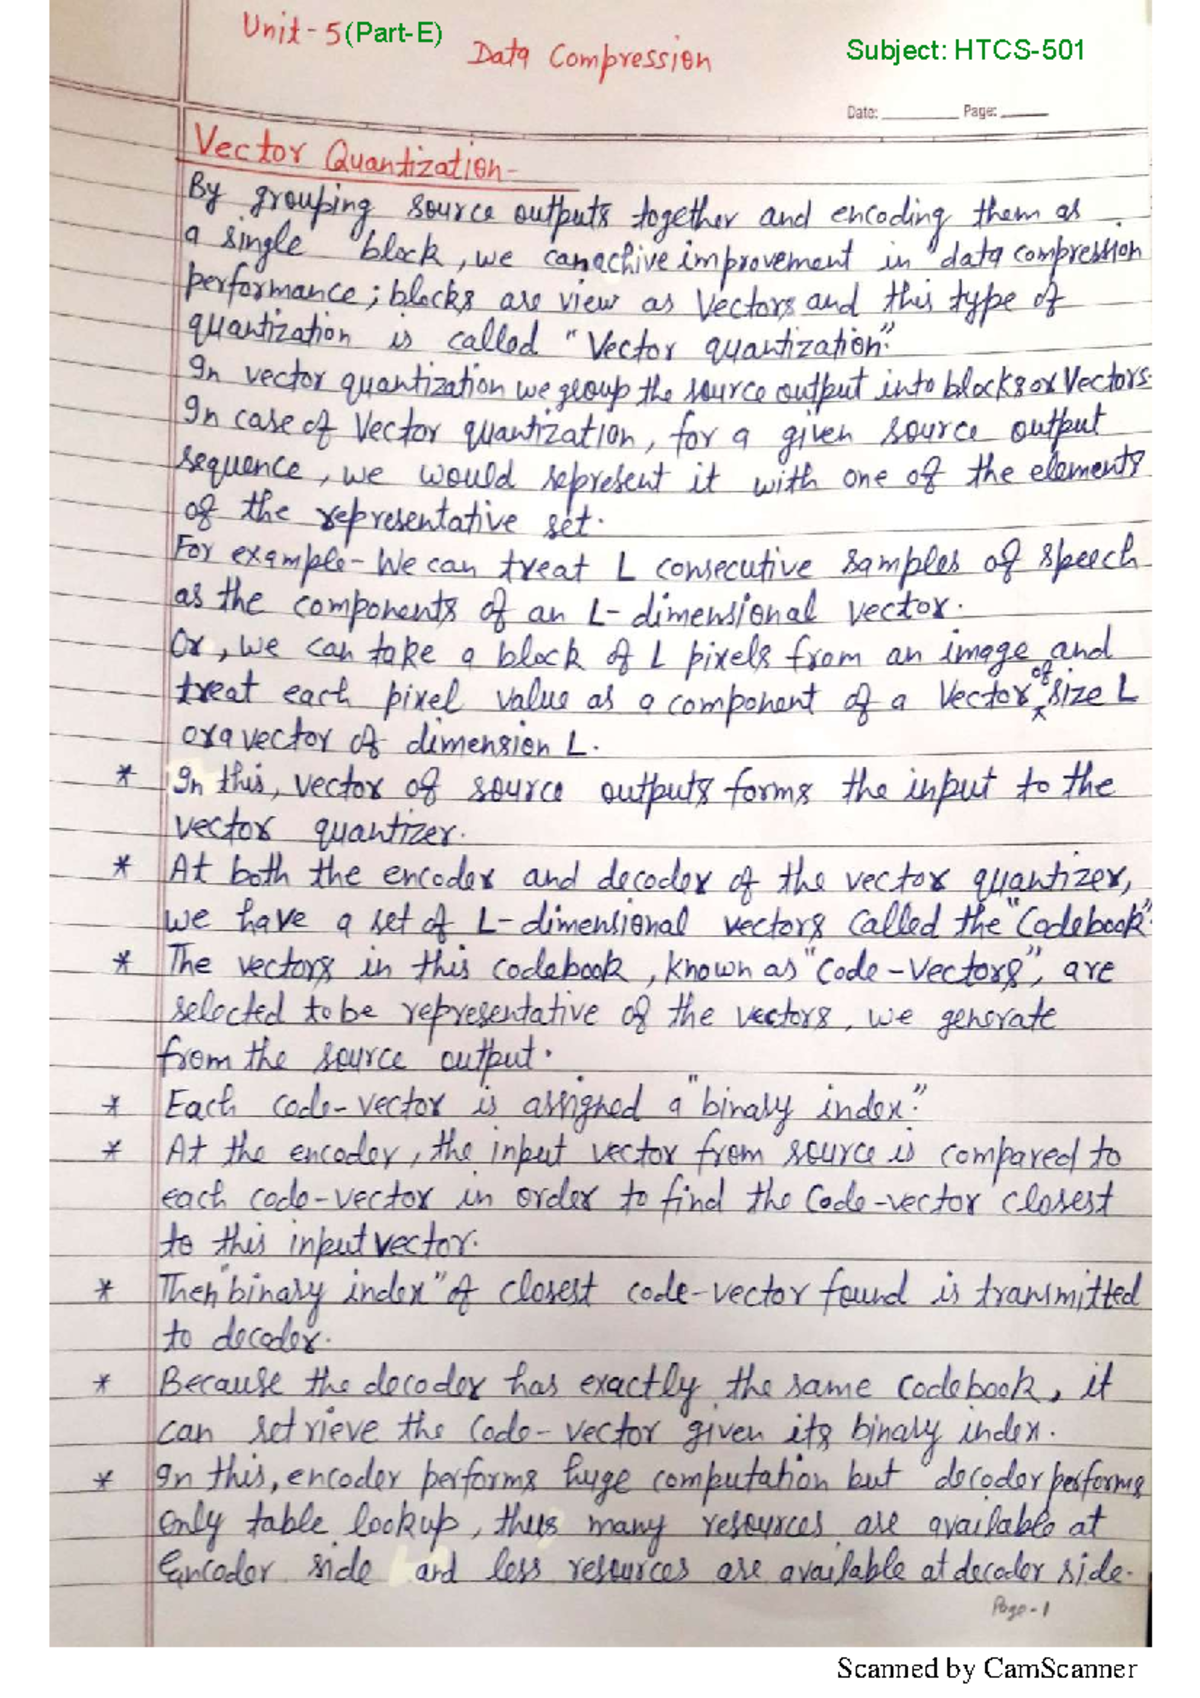 Unit-5 (Part-E)
Data Compression
Subject: HTCS-501
Date: ________ Page: ______
Vector Quantization-
By grouping source outputs together and encoding them as
a single block, we can achive improvement in data compression
performance; blocks are view as Vectors and this type of
quantization is called "Vector quantization."
In vector quantization we group the source output into blocks or Vectors.
In case of Vector quantization, for a given source output
sequence, we would represent it with one of the elements
of the representative set.
For example- We can treat L consecutive samples of speech
as the components of an L-dimensional vector.
Or, we can take a block of L pixels from an image and
treat each pixel value as a component of a Vector of size L
or a vector of dimension L.
* In this, vector of source outputs forms the input to the
vector quantizer.
* At both the encoder and decoder of the vector quantizer,
we have a set of L-dimensional vectors called the "Codebook".
* The vectors in this codebook, known as "Code-Vectors", are
selected to be representative of the vectors, we generate
from the source output.
* Each code-vector is assigned a "binary index."
* At the encoder, the input vector from source is compared to
each code-vector in order to find the Code-vector closest
to this input vector.
* Then "binary index" of closest code-vector found is transmitted
to decoder.
* Because the decoder has exactly the same codebook, it
can retrieve the Code-vector given its binary index.
* In this, encoder performs huge computation but decoder performs
only table lookup, thus many resources are available at
Encoder side and less resources are available at decoder side.
Page-1
Scanned by CamScanner